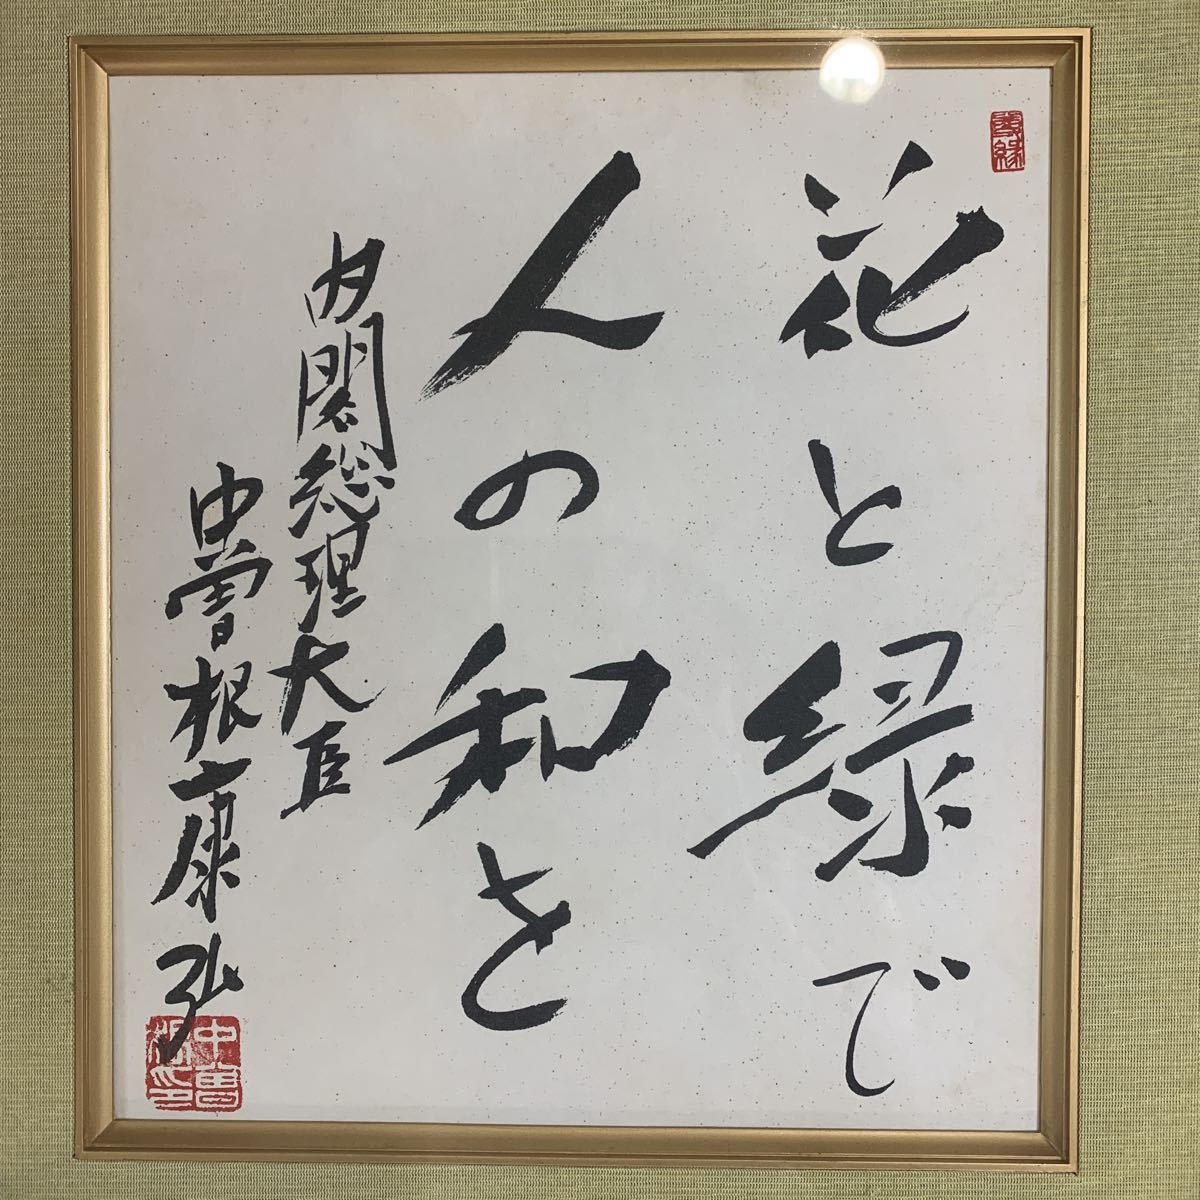 花と緑で
人の和を
内閣総理大臣
中曽根康弘
中曽
根印